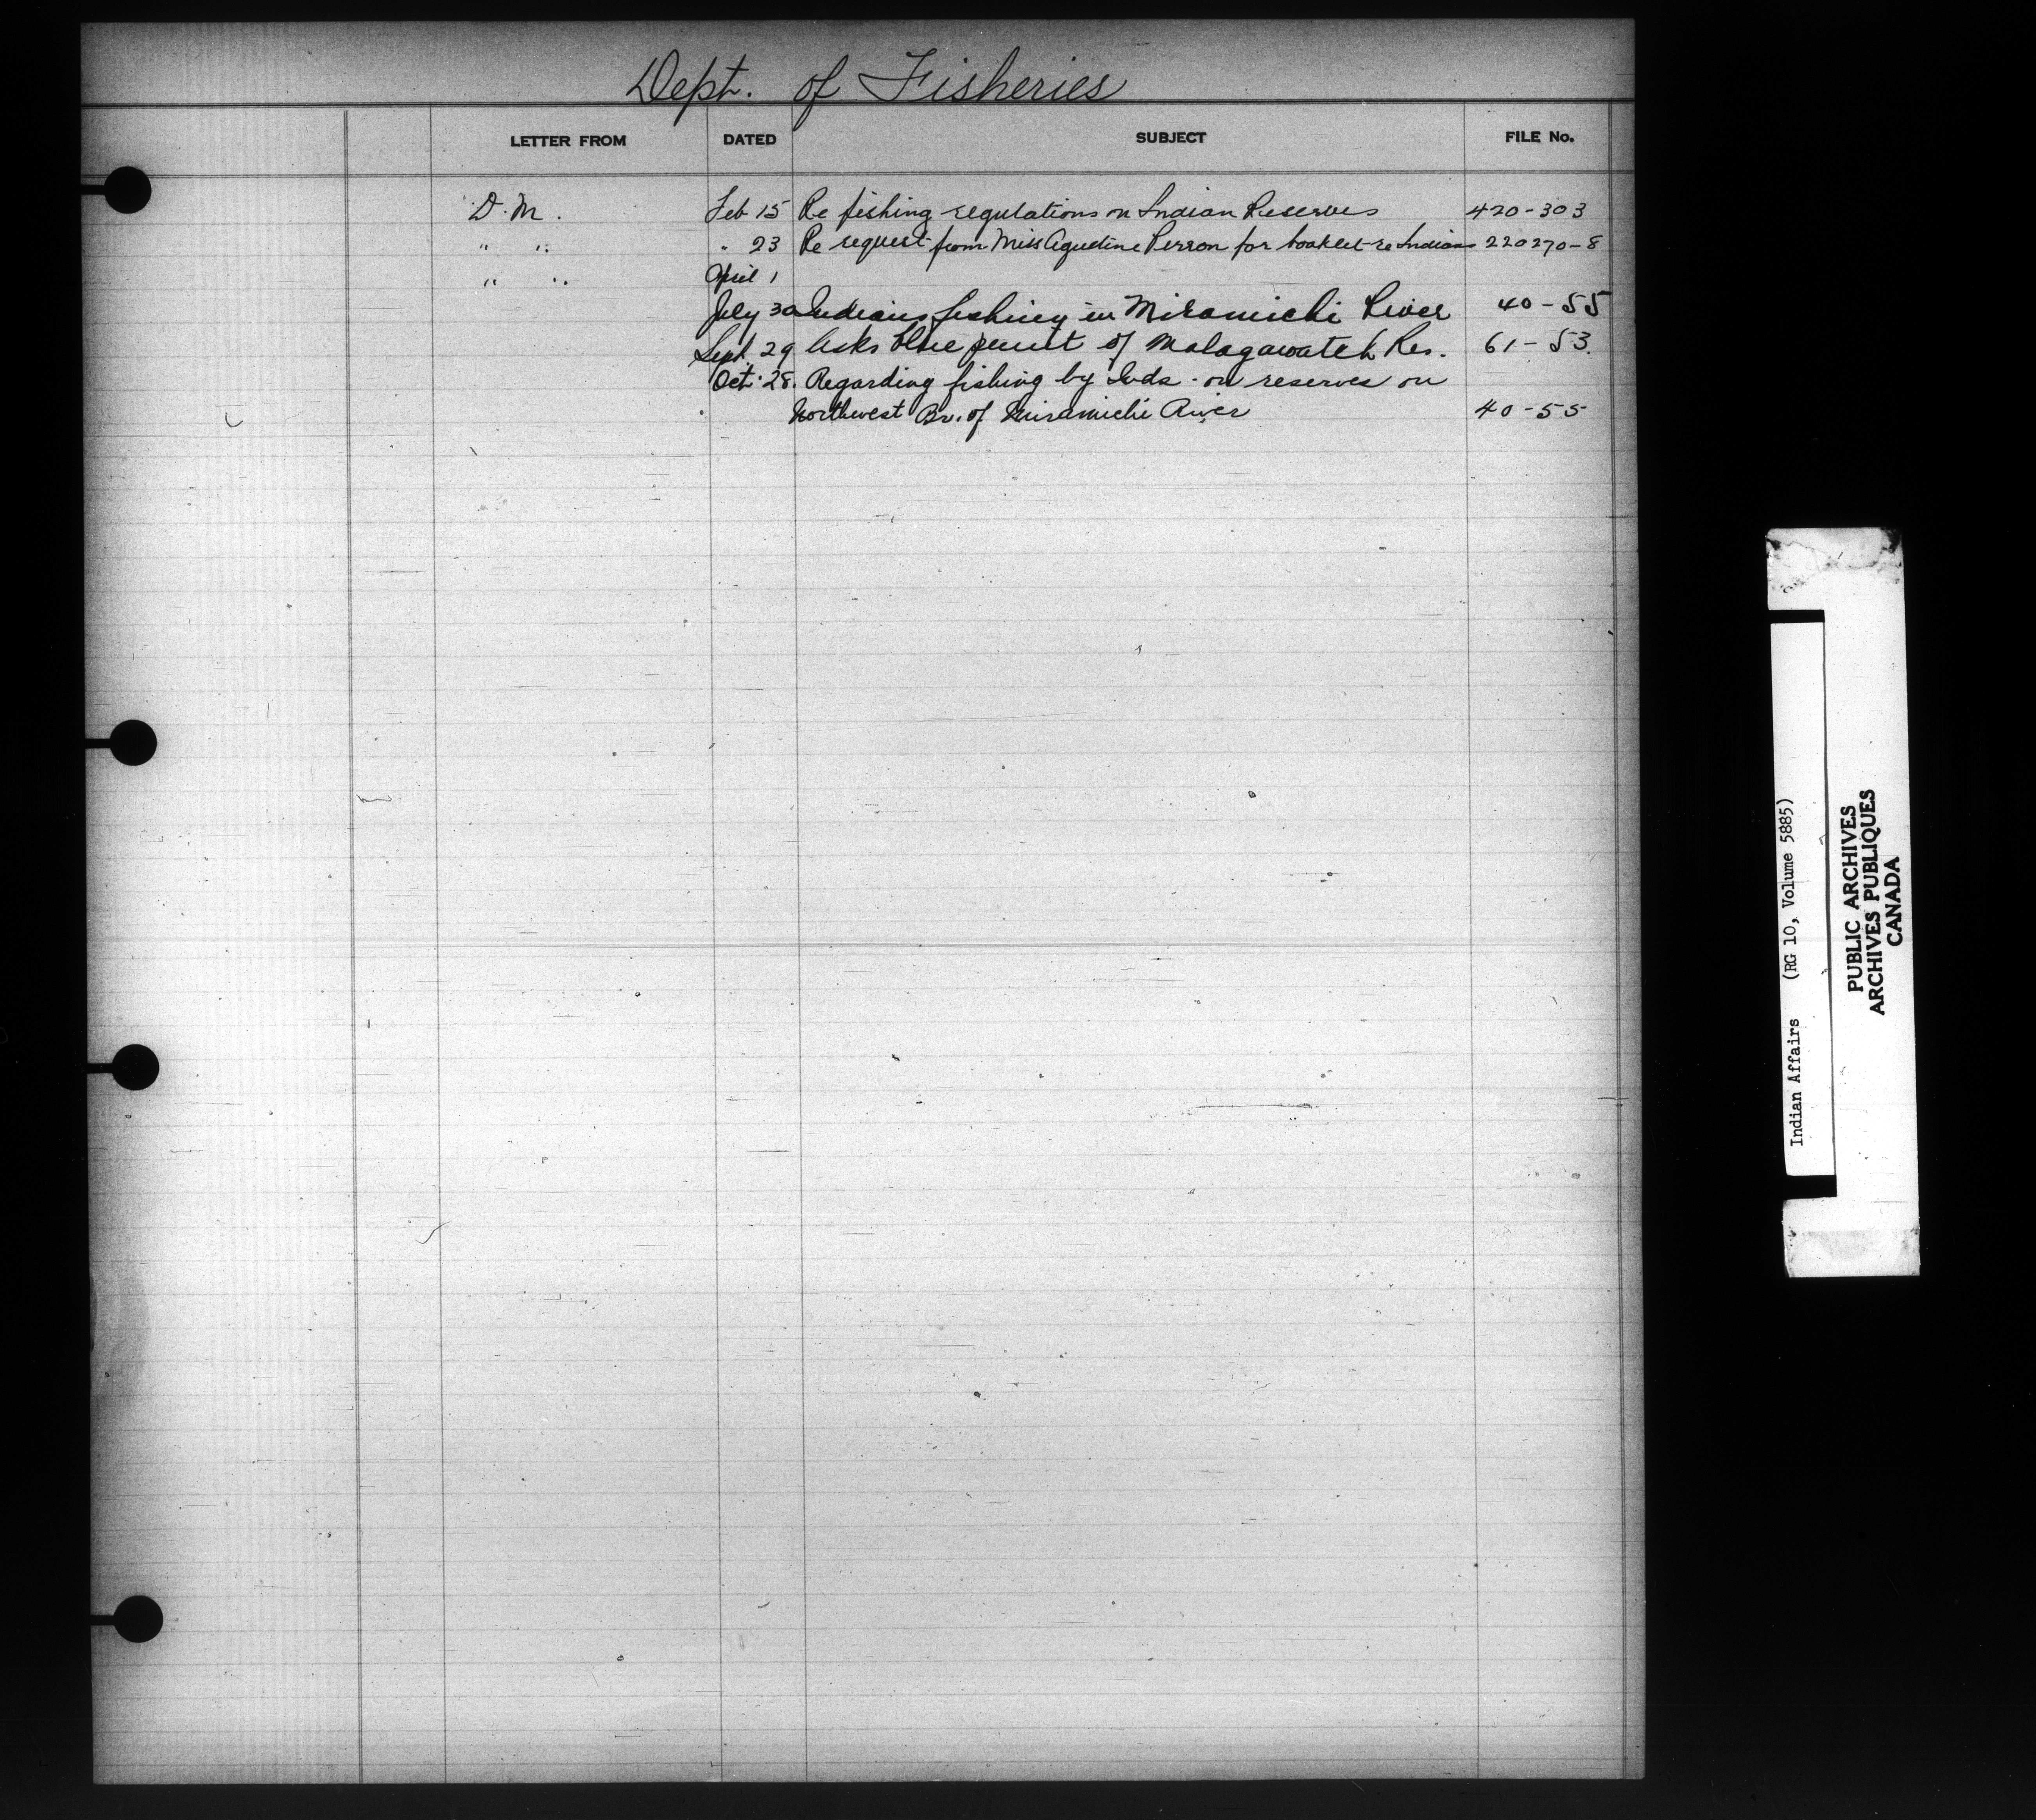 Dept. of Fisheries
LETTER FROM DATED SUBJECT FILE No.
D. M. Feb 15 Re fishing regulations on Indian Reserves 420-303
" " " 23 Re request from Miss Agustine Perron for booklet re Indians 220270-8
" " April 1
July 30 Indians fishing in Miramichi River 40-55
Sept. 29 Asks blue print of Malagawatch Res. 61-53.
Oct. 28. Regarding fishing by Inds. on reserves on
Northwest Br. of Miramichi River 40-55
Indian Affairs (RG 10, Volume 5885)
PUBLIC ARCHIVES
ARCHIVES PUBLIQUES
CANADA